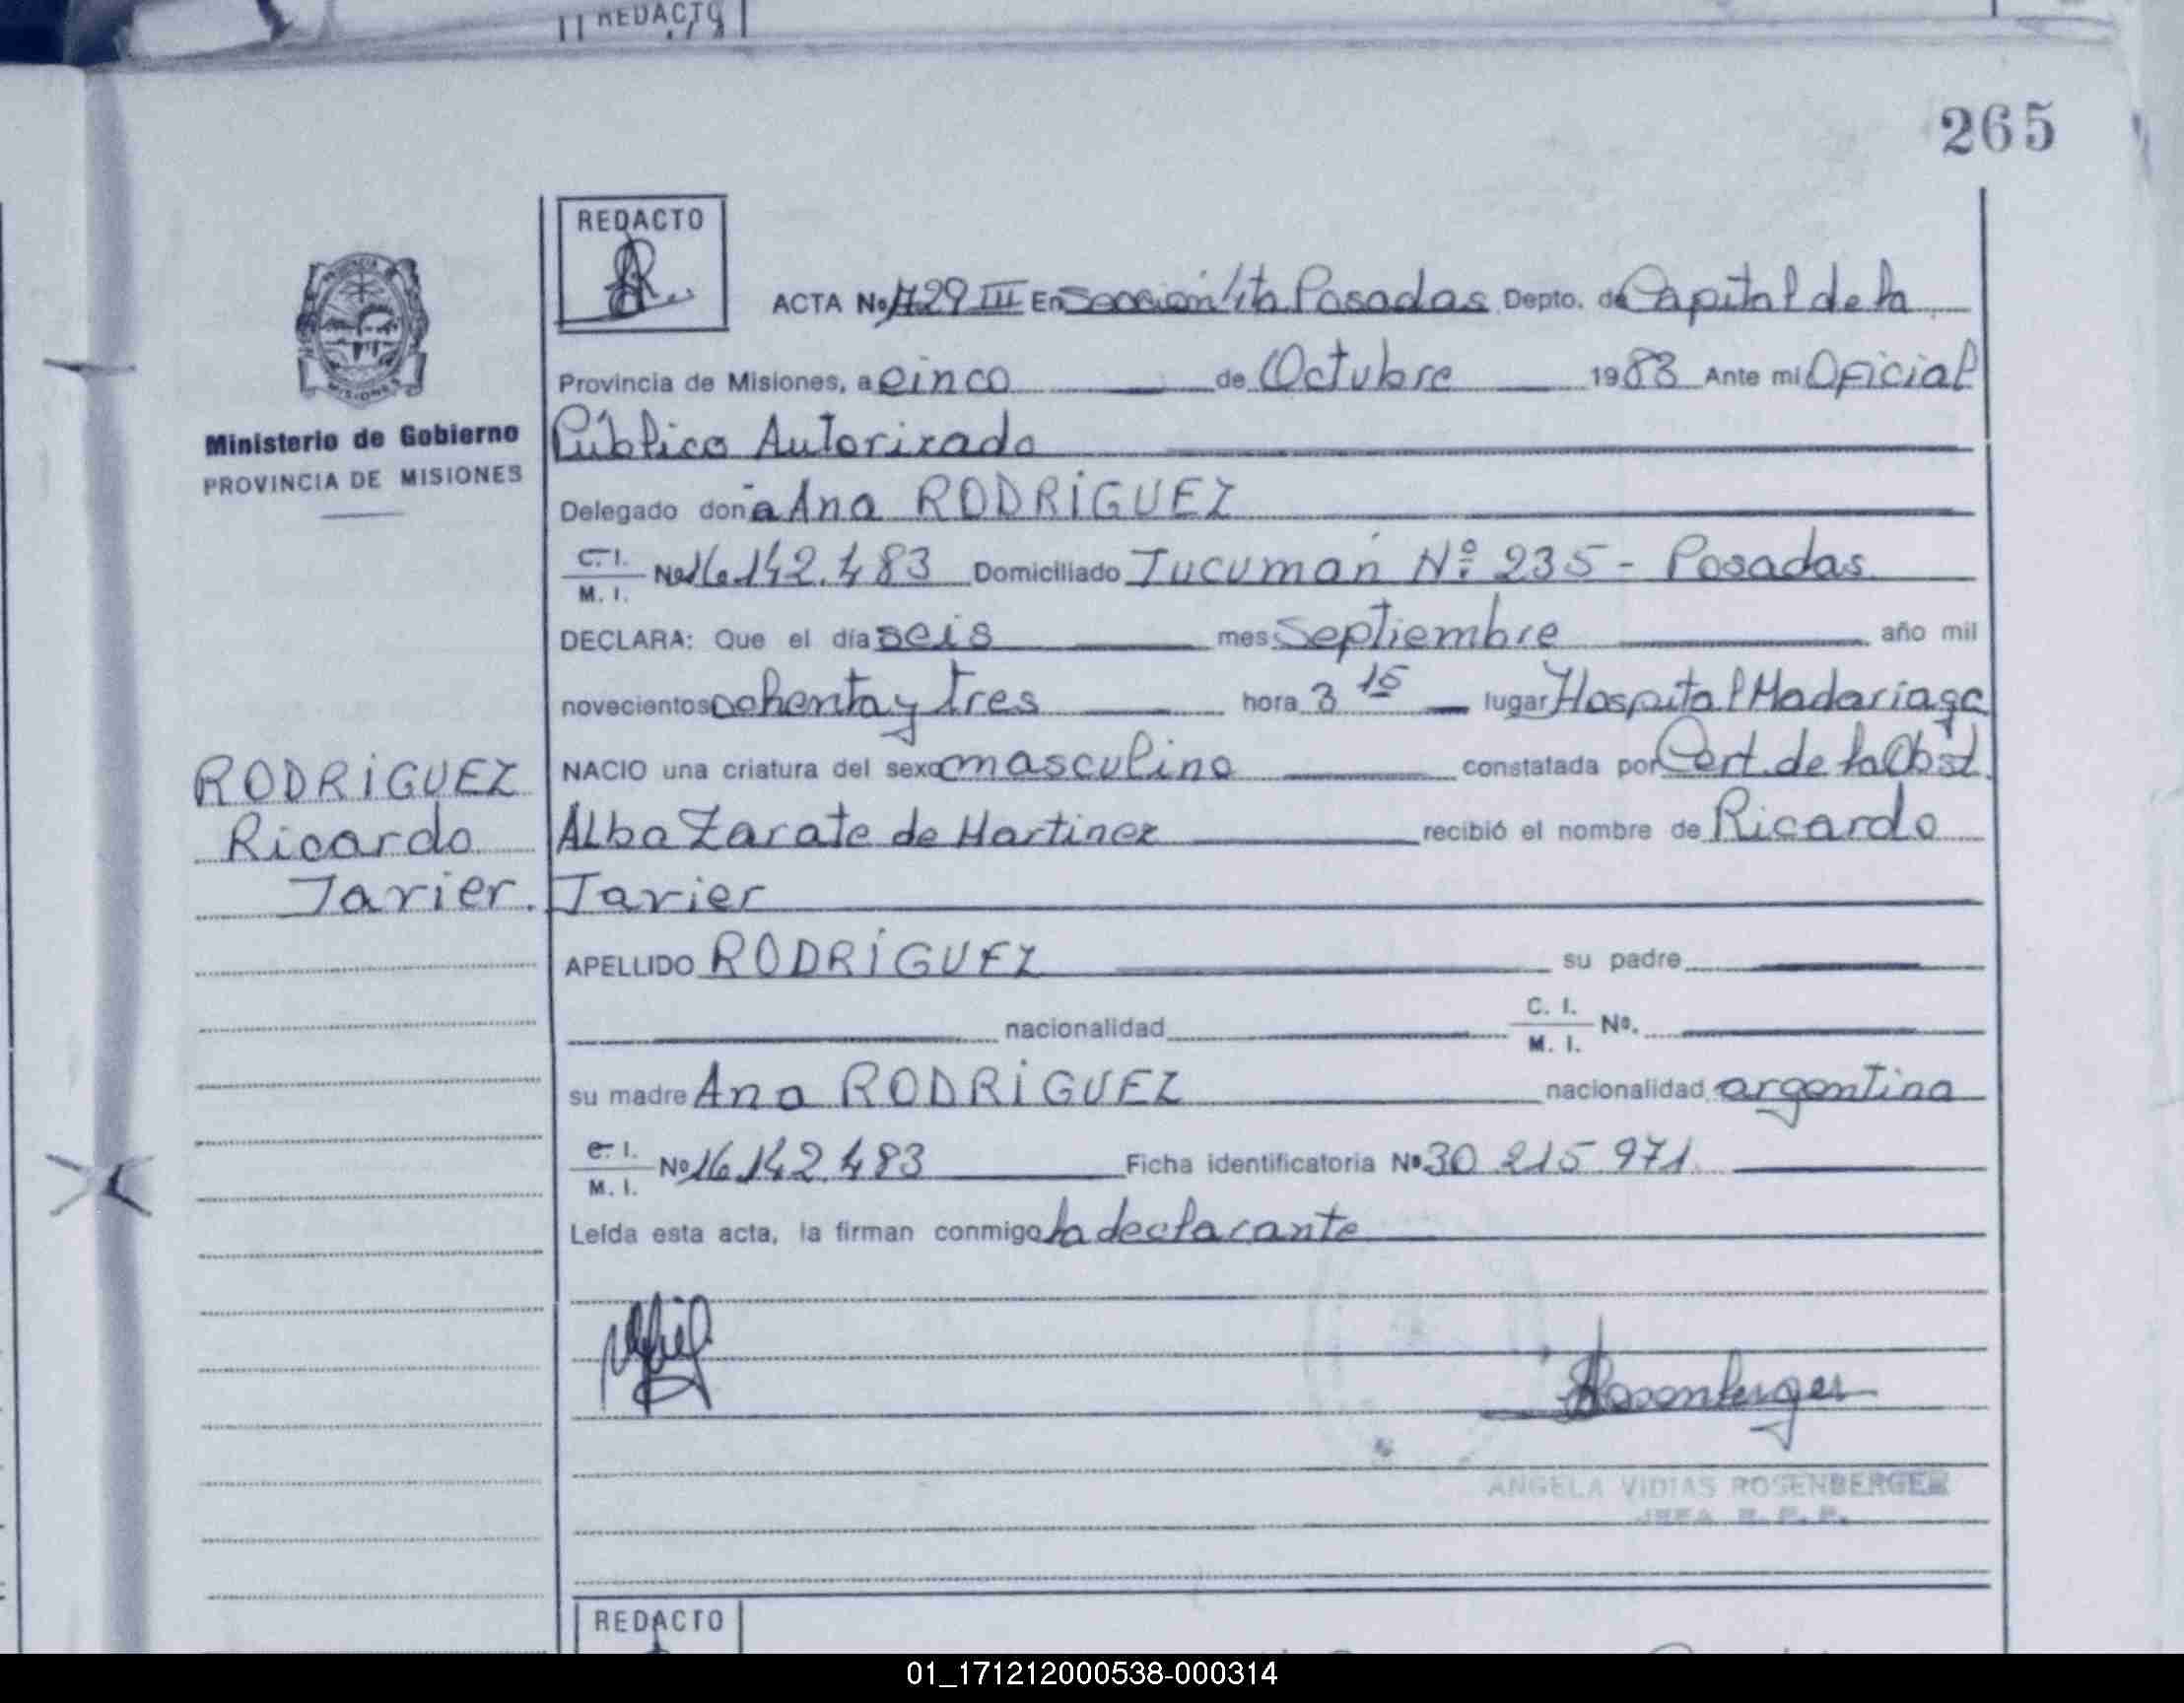 REDACTO
265
REDACTO
ACTA No 1729 III En Sección 1ta Posadas Depto. de Capital de la
Provincia de Misiones, a cinco de Octubre 1983 Ante mi Oficial
Ministerio de Gobierno
Público Autorizado
PROVINCIA DE MISIONES
Delegado doña Ana RODRIGUEZ
C. I.
M. I.
No 16.142.483 Domiciliado Tucumán Nº 235 - Posadas
DECLARA: Que el día seis mes Septiembre año mil
novecientos ochenta y tres hora 3 15 lugar Hospital Madariaga
NACIO una criatura del sexo masculino constatada por Cert. de la Obst.
RODRIGUEZ
Ricardo
Javier.
Alba Zarate de Martinez recibió el nombre de Ricardo
Javier
APELLIDO RODRIGUEZ su padre
nacionalidad C. I. M. I. No.
su madre Ana RODRIGUEZ nacionalidad argentina
C. I.
M. I.
No 16.142.483 Ficha identificatoria No 30.215.971.
Leída esta acta, la firman conmigo la declarante
Rosenberger
ANGELA VIDIAS ROSENBERGER
JEFA
REDACTO
01_171212000538-000314